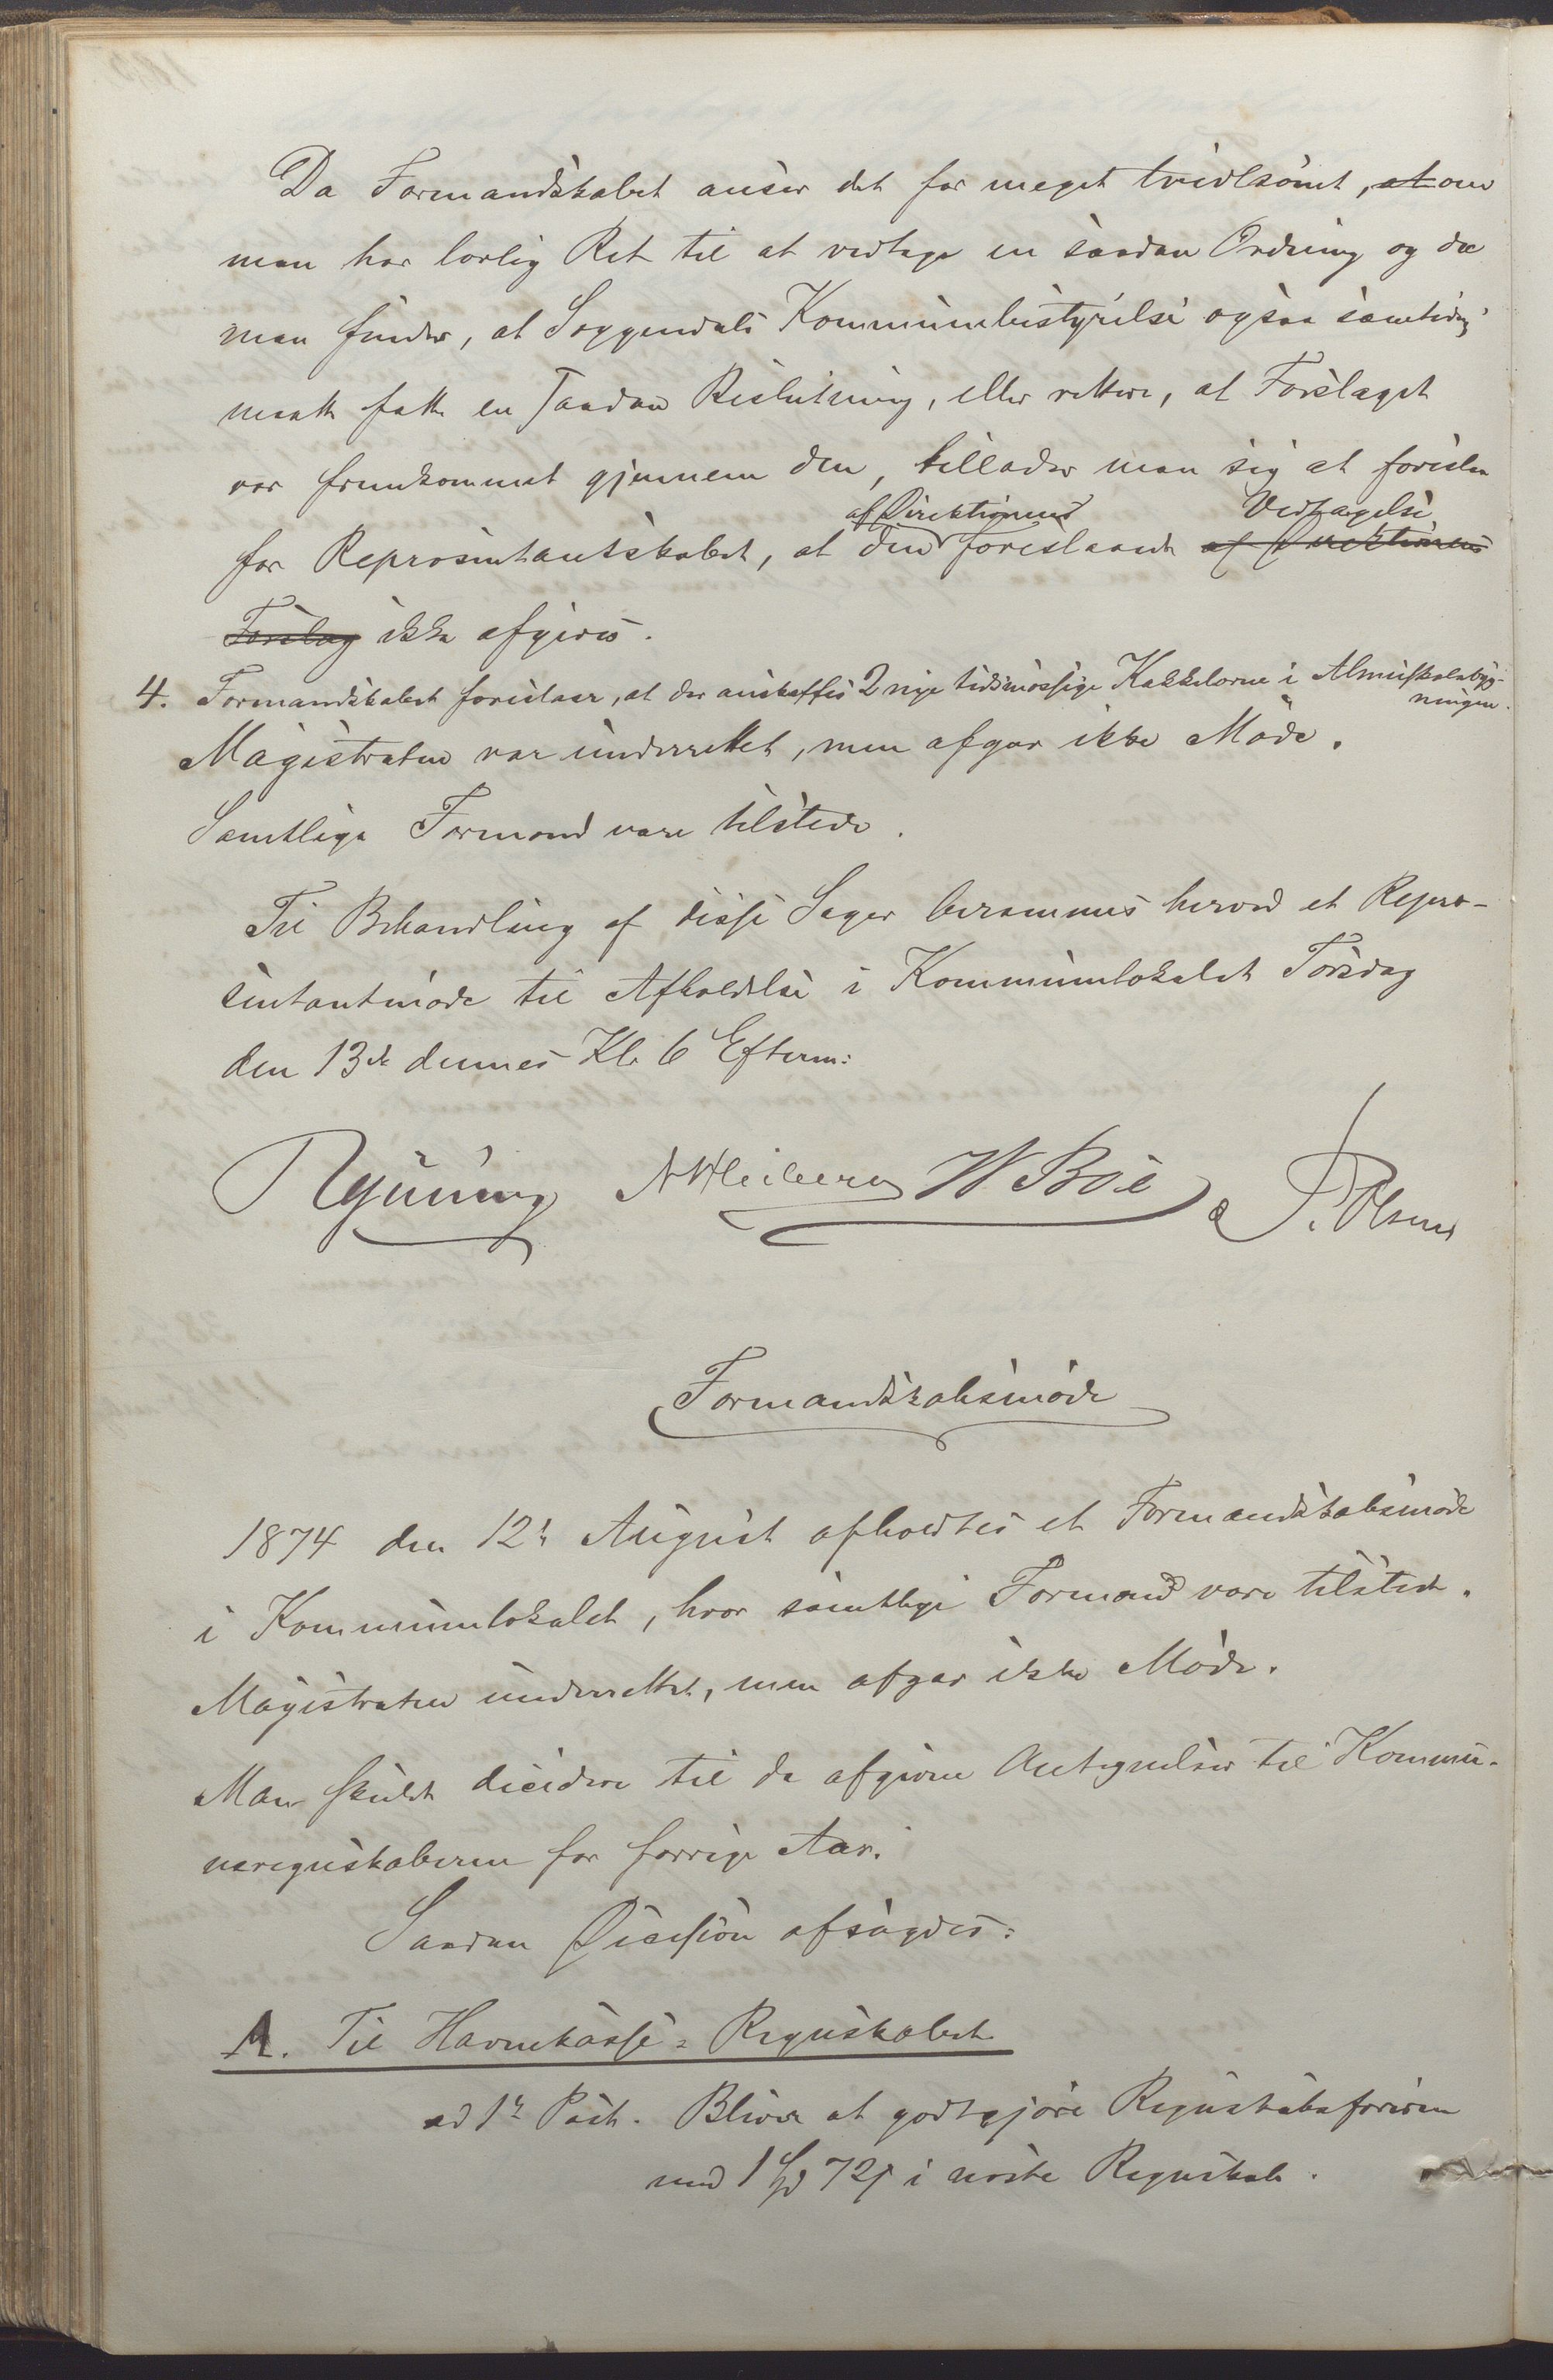 Da Formandskabet anser det for meget tvivlsomt, at om
man har lovlig Ret til at vedtage en saadan Ordning og da
man finder, at Soggendals Kommunebestyrelse ogsaa samtidig
maatte fatte en saadan Beslutning, eller rettere, at Forslaget
var fremkommet gjennem den, tillader man sig at foreslaa
for Repræsentantskabet, at den af Direktionens foreslaaede af Direktionens Vedtagelse
Forslag ikke afgives.
4. Formandskabet foreslaar, at der anskaffes 2 nye tidsmæssige Kakkelovne i Almueskolebyg-
ningen.
Magistraten var underrettet, men afgav ikke Møde.
Samtlige Formænd vare tilstede.
Til Behandling af disse Sager berammes herved et Repræ-
sentantmøde til Afholdelse i Kommunelokalet Torsdag
den 13de dennes Kl. 6 Efterm:
W Böe P. Olsen
Formandskabsmøde
1874 den 12te August afholdtes et Formandskabsmøde
i Kommunelokalet, hvor samtlige Formænd vare tilstede.
Magistraten underrettet, men afgav ikke Møde.
Man skulde decidere til de afgivne Antegnelser til Kommu-
neregnskaberne for forrige Aar.
Saadan Decision afsagdes:
A. Til Havnekasse-Regnskabet
ad 1te Post. Bliver at godtgjøre Regnskabsføreren
med 1 Spd 72 s i næste Regnskab.